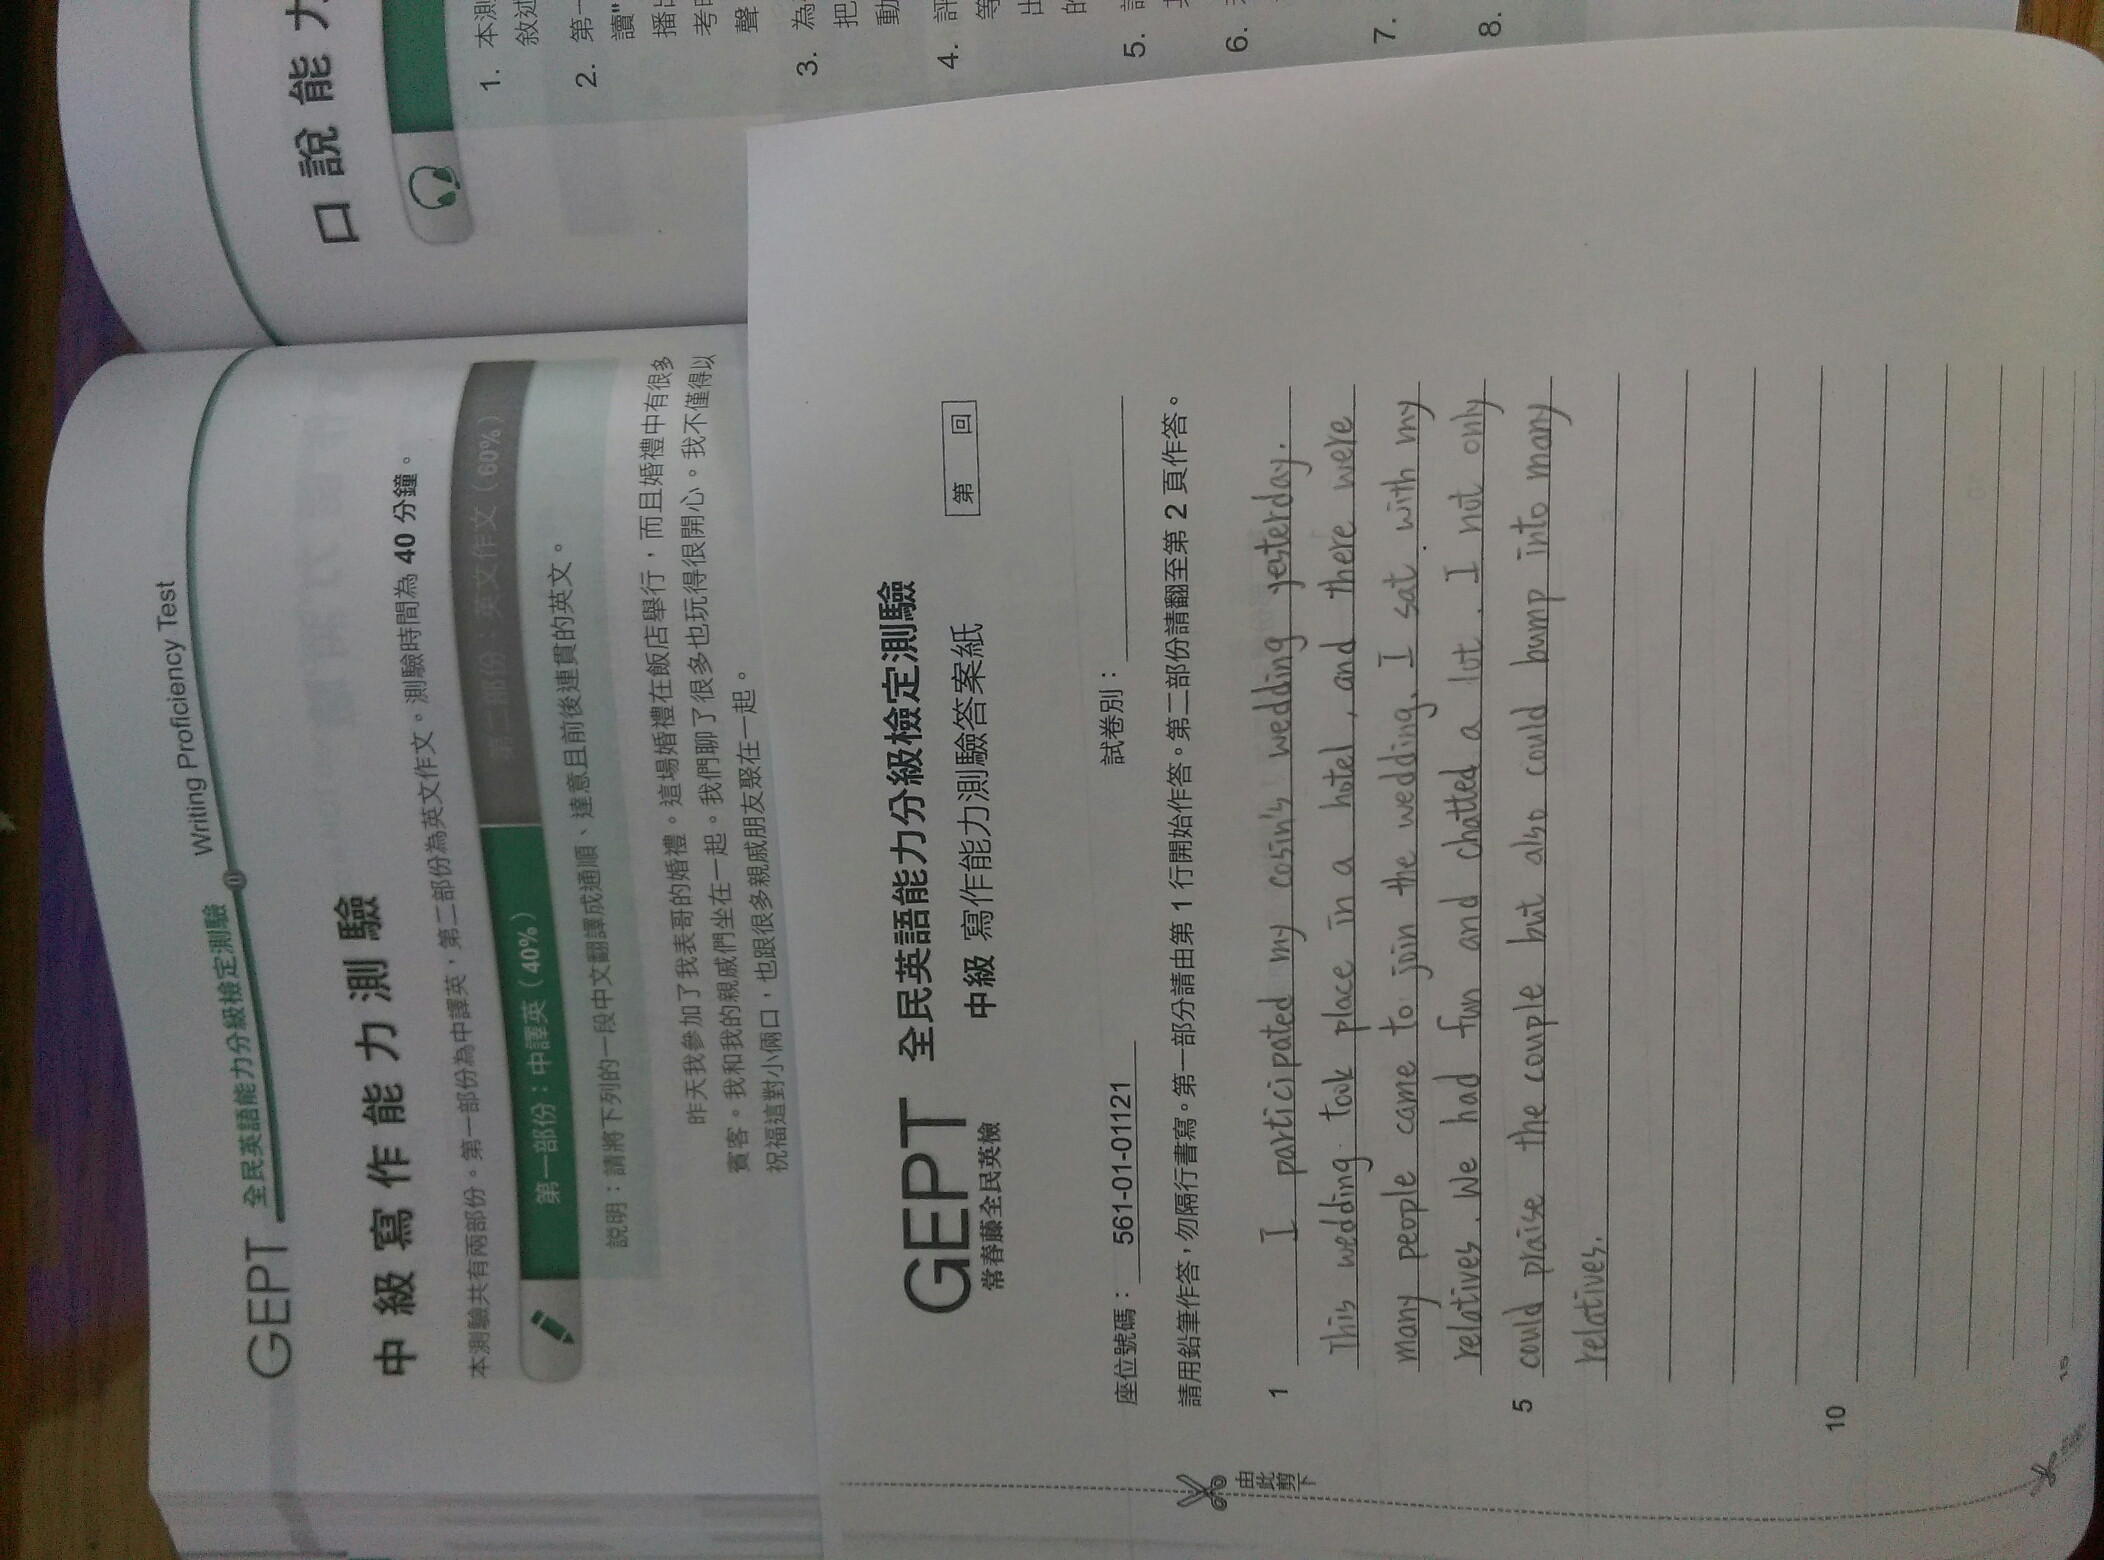 GEPT 全民英語能力分級檢定測驗
Writing Proficiency Test
中級寫作能力測驗
本測驗共有兩部份。第一部份為中譯英，第二部份為英文作文。測驗時間為 40 分鐘。
第一部份：中譯英（40%）
第二部份：英文作文（60%）
說明：請將下列的一段中文翻譯成通順、達意且前後連貫的英文。
昨天我參加了我表哥的婚禮。這場婚禮在飯店舉行，而且婚禮中有很多
賓客。我和我的親戚們坐在一起。我們聊了很多也玩得很開心。我不僅得以
祝福這對小倆口，也跟很多親戚朋友聚在一起。
口說能力
1. 本測
敘述
2. 第一
讀"
播出
考
聲
3. 為
把
動
4. 評
等
出
的
5.
6.
7.
8.
GEPT 全民英語能力分級檢定測驗
常春藤全民英檢
中級 寫作能力測驗答案紙
第 回
座位號碼： 561-01-01121
試卷別：
請用鉛筆作答，勿隔行書寫。第一部分請由第 1 行開始作答。第二部份請翻至第 2 頁作答。
1 I participated my cosin's wedding yesterday.
This wedding took place in a hotel, and there were
many people came to join the wedding. I sat with my
relatives. We had fun and chatted a lot. I not only
5 could praise the couple but also could bump into many
relatives.
10
15
由此剪下